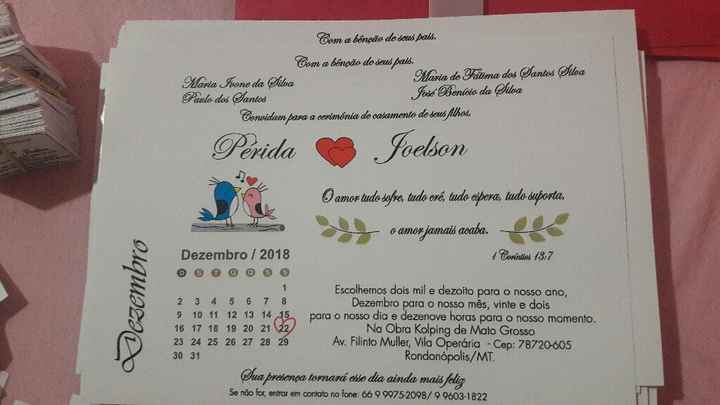 Com a bênção de seus pais.
Com a bênção de seus pais.
Maria Ivone da Silva
Paulo dos Santos
Maria de Fátima dos Santos Silva
José Benício da Silva
Convidam para a cerimônia de casamento de seus filhos.
Périda Joelson
O amor tudo sofre, tudo crê, tudo espera, tudo suporta,
o amor jamais acaba.
1 Coríntios 13:7
Dezembro
Dezembro / 2018
D S T Q Q S S
1
2 3 4 5 6 7 8
9 10 11 12 13 14 15
16 17 18 19 20 21 22
23 24 25 26 27 28 29
30 31
Escolhemos dois mil e dezoito para o nosso ano,
Dezembro para o nosso mês, vinte e dois
para o nosso dia e dezenove horas para o nosso momento.
Na Obra Kolping de Mato Grosso
Av. Filinto Muller, Vila Operária - Cep: 78720-605
Rondonópolis/MT.
Sua presença tornará esse dia ainda mais feliz
Se não for, entrar em contato no fone: 66 9 9975-2098/ 9 9603-1822